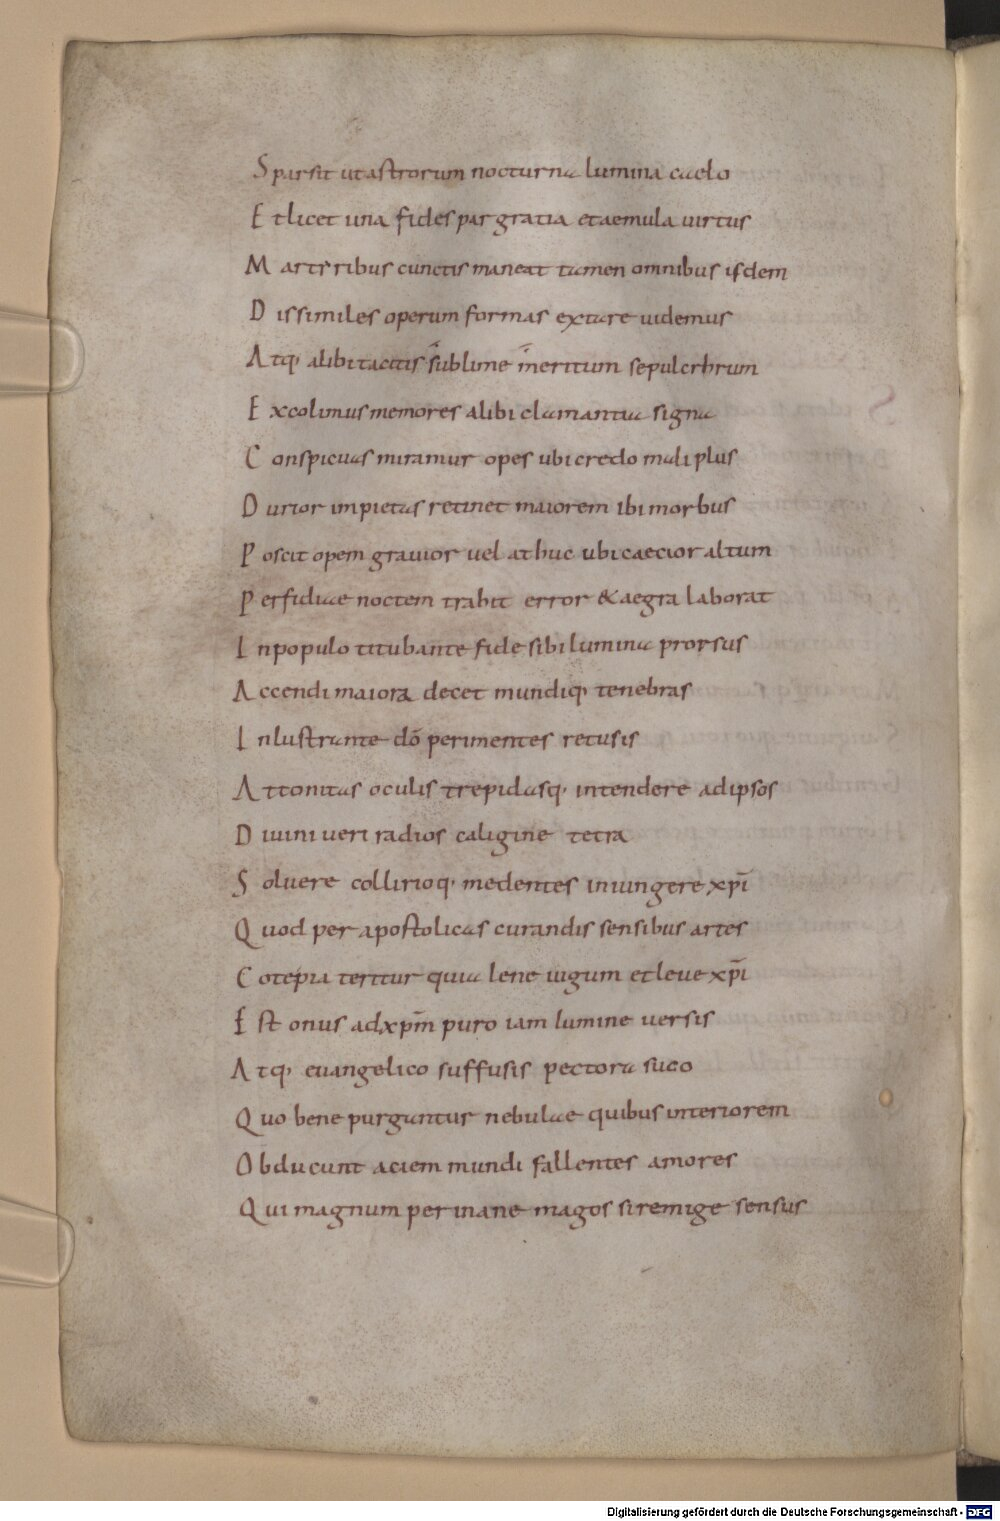 Sparsit ut astrorum nocturna lumina caelo
Et licet una fides par gratia et aemula uirtus
Marteribus cunctis maneat tamen omnibus isdem
Dissimiles operum formas extare uidemus
Atq· alibi tacitis sublime meritum sepulcrhrum
Excolimus memores alibi clamantia signa
Conspicuas miramur opes ubi credo mali plus
Durior impietas retinet maiorem ibi morbus
Poscit opem grauior uel athuc ubi caecior altum
Perfidiae noctem trahit error & aegra laborat
In populo titubante fide sibi lumina prorsus
Accendi maiora decet mundiq· tenebras
Inlustrante dō perimentes retusis
Attonitas oculis trepidasq· intendere ad ipsos
Diuini ueri radios caligine tetra
Soluere collirioq· medentes inungere xpī
Quod per apostolicas curandis sensibus artes
Cote pia teritur quia lene iugum et leue xpī
Est onus ad xpm̄ puro iam lumine uersis
Atq· euangelico suffusis pectora suco
Quo bene purgantur nebulae quibus interiorem
Obducunt aciem mundi fallentes amores
Qui magnum per inane magos si remige sensus
Digitalisierung gefördert durch die Deutsche Forschungsgemeinschaft - DFG